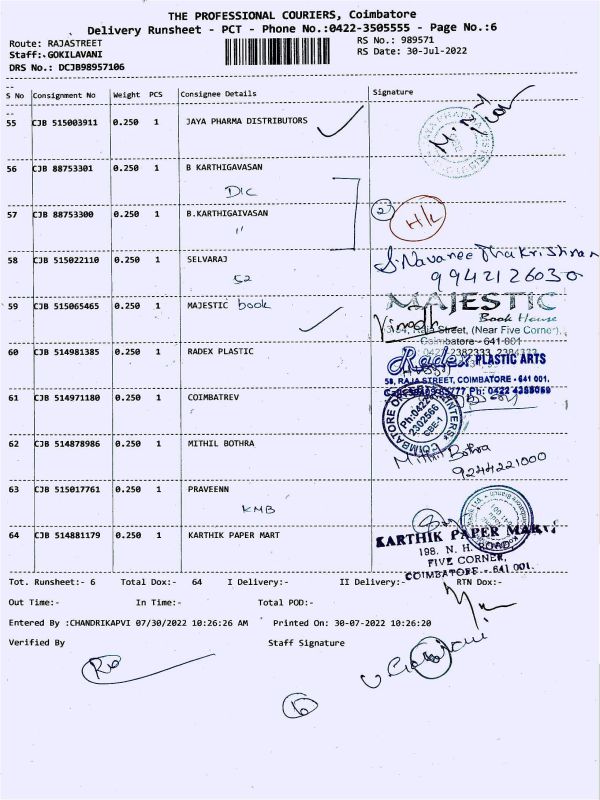 THE PROFESSIONAL COURIERS, Coimbatore
Delivery Runsheet - PCT - Phone No.:0422-3505555 - Page No.:6
Route: RAJASTREET RS No.: 989571
Staff: GOKILAVANI RS Date: 30-Jul-2022
DRS No.: DCJB98957106
S No Consignment No Weight PCS Consignee Details Signature
55 CJB 515003911 0.250 1 JAYA PHARMA DISTRIBUTORS
56 CJB 88753301 0.250 1 B KARTHIGAVASAN
DIC
57 CJB 88753300 0.250 1 B.KARTHIGAIVASAN
" 2 H/L
58 CJB 515022110 0.250 1 SELVARAJ S.Navaneethakrishnan
52 9942126030
59 CJB 515065465 0.250 1 MAJESTIC book MAJESTIC
Book House
Vinoth Raja Street, (Near Five Corner),
Coimbatore - 641 001
60 CJB 514981385 0.250 1 RADEX PLASTIC Radex PLASTIC ARTS
58, RAJA STREET, COIMBATORE - 641 001.
Ph: 0422 4388069
61 CJB 514971180 0.250 1 COIMBATREV
Ph:0422
2302566
CBE-1
62 CJB 514878986 0.250 1 MITHIL BOTHRA Mithil Bothra
9244221000
63 CJB 515017761 0.250 1 PRAVEENN
KMB 8
64 CJB 514881179 0.250 1 KARTHIK PAPER MART KARTHIK PAPER MART
198. N. H. ROAD,
FIVE CORNER,
COIMBATORE - 641 001.
Tot. Runsheet:- 6 Total Dox:- 64 I Delivery:- II Delivery:- RTN Dox:-
Out Time:- In Time:- Total POD:-
Entered By :CHANDRIKAPVI 07/30/2022 10:26:26 AM Printed On: 30-07-2022 10:26:20
Verified By Staff Signature
6